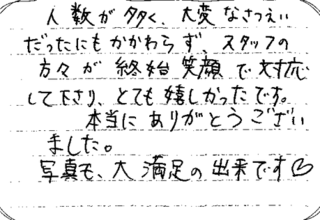 人数が多く、大変なさつえい
だったにもかかわらず、スタッフの
方々が終始笑顔で対応
して下さり、とても嬉しかったです。
本当にありがとうござい
ました。
写真も、大満足の出来です♡